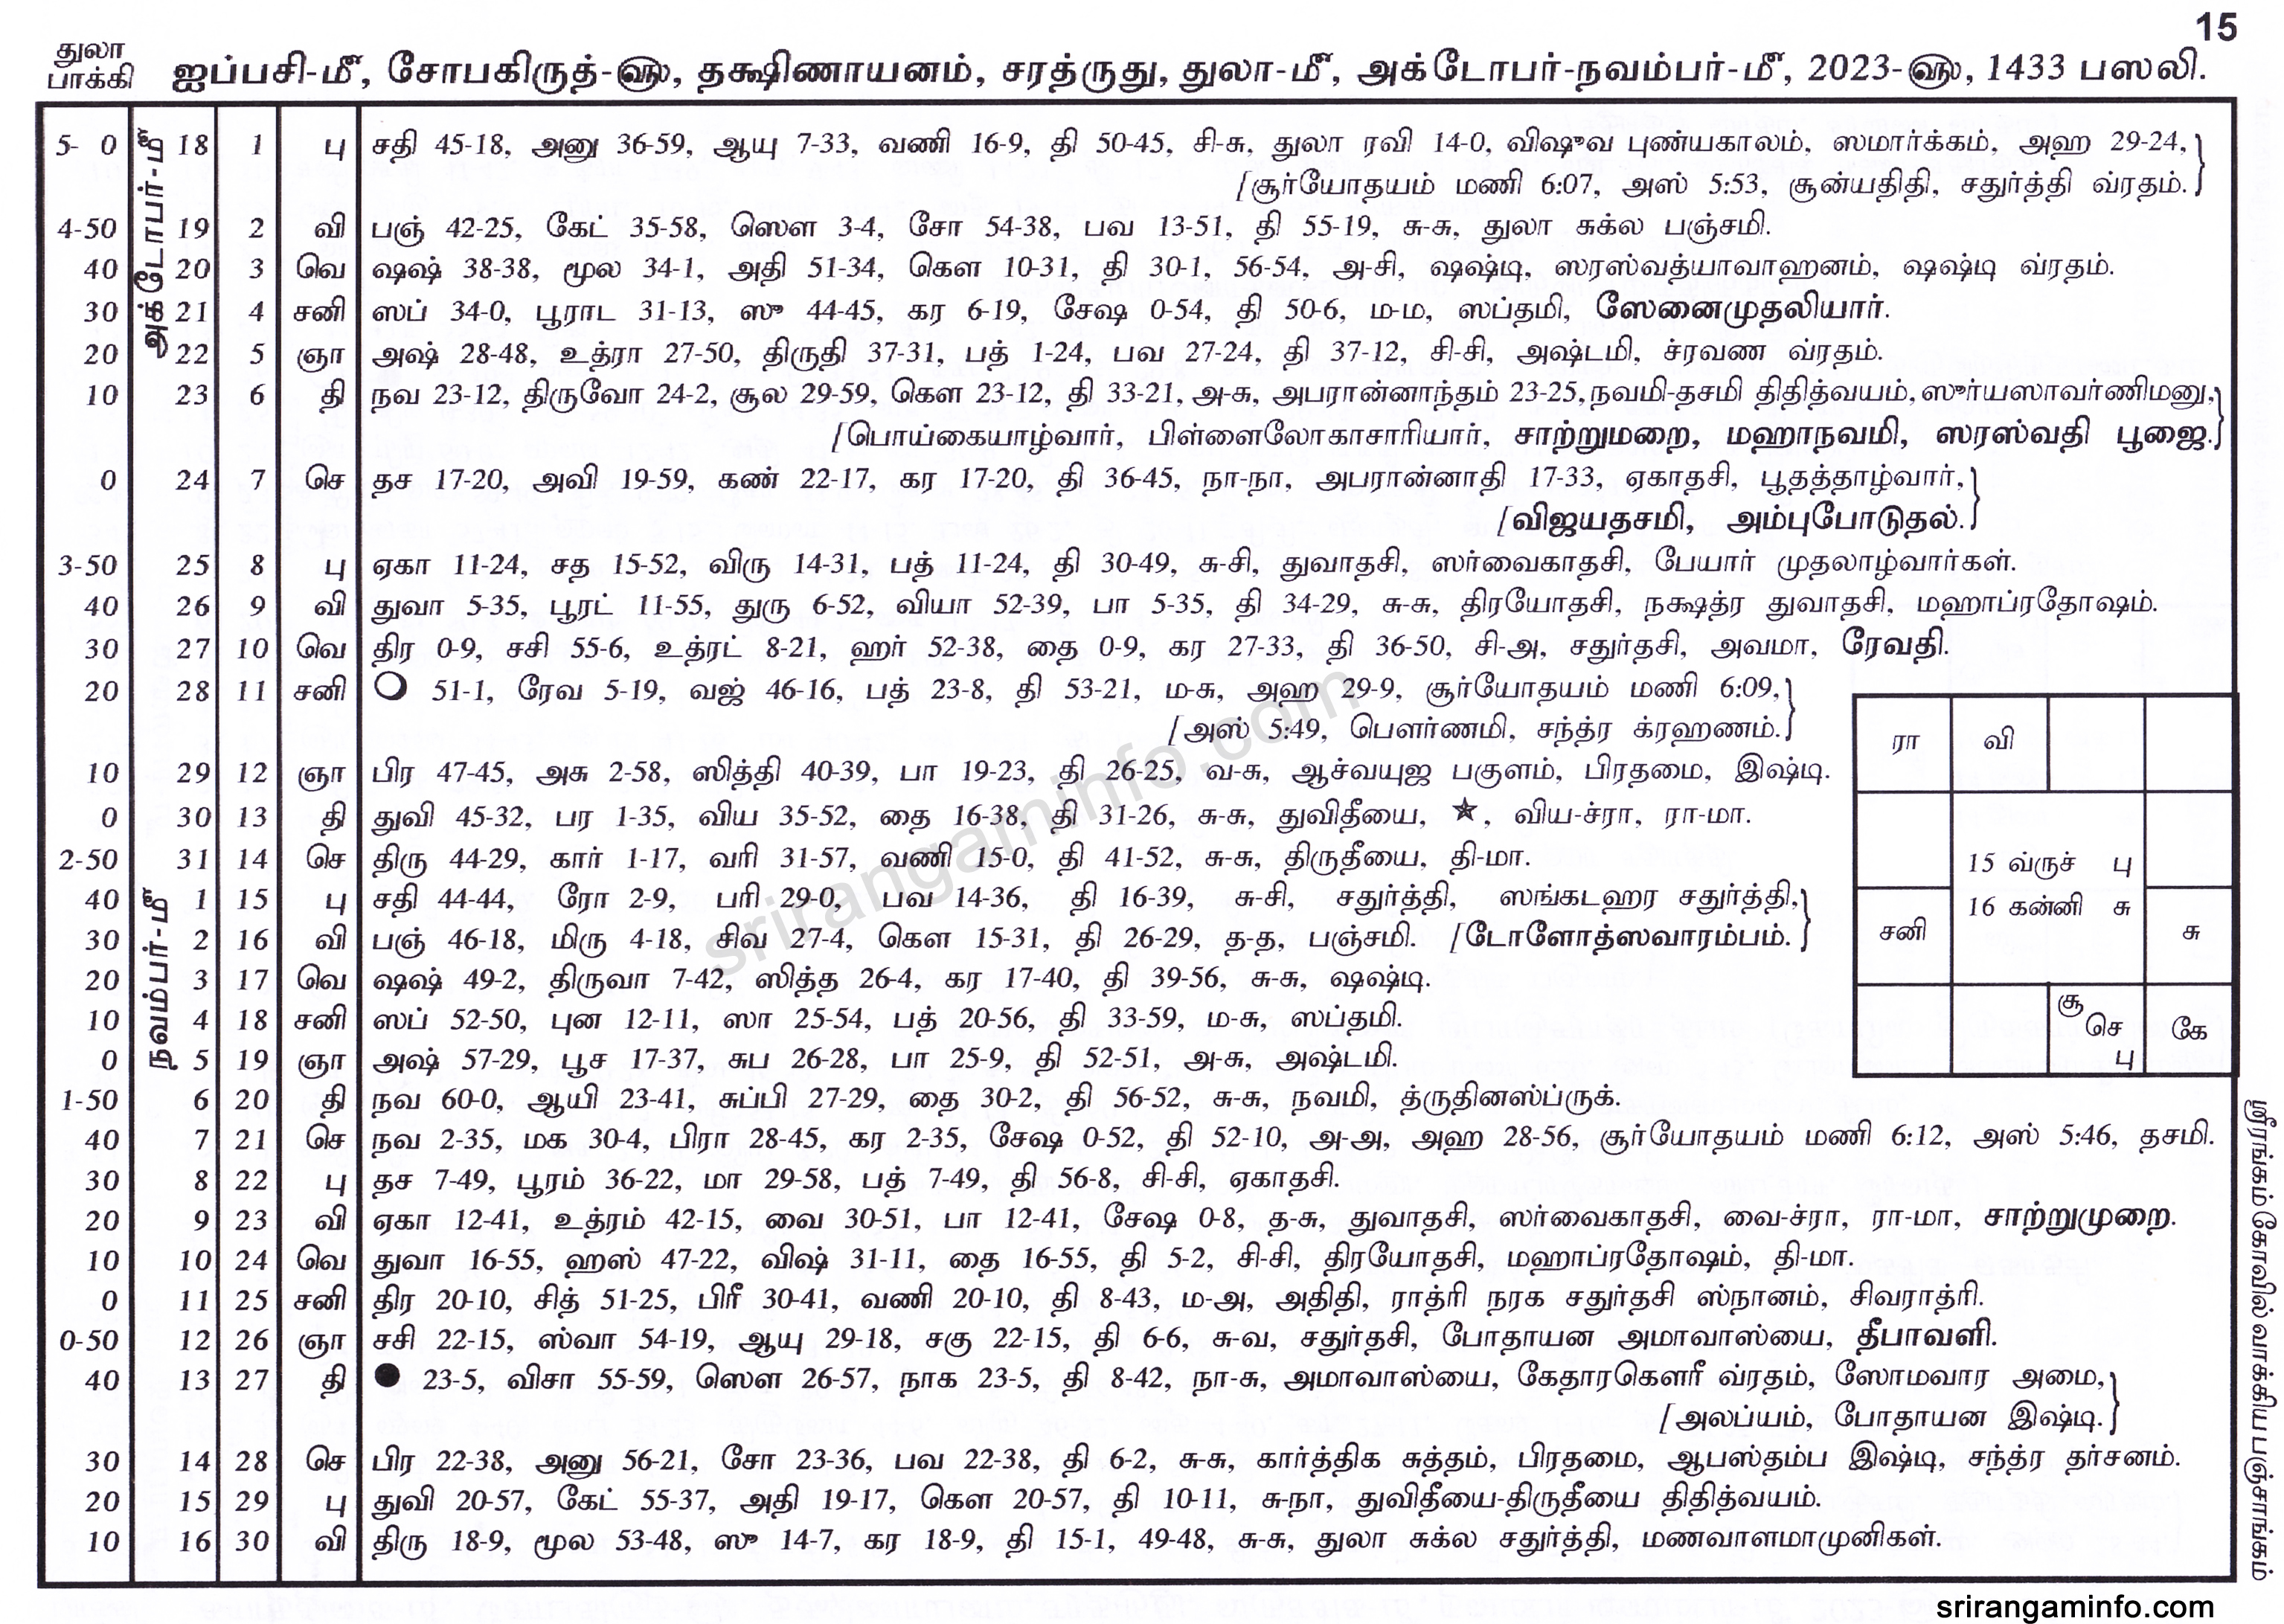 15
துலா
பாக்கி
ஐப்பசி-மீ, சோபகிருத்-௵, தக்ஷிணாயனம், சரத்ருது, துலா-மீ, அக்டோபர்-நவம்பர்-மீ, 2023-௵, 1433 பஸலி.
அக்டோபர்-மீ
5- 0 18 1 பு சதி 45-18, அனு 36-59, ஆயு 7-33, வணி 16-9, தி 50-45, சி-சு, துலா ரவி 14-0, விஷுவ புண்யகாலம், ஸமார்க்கம், அஹ 29-24,
[சூர்யோதயம் மணி 6:07, அஸ் 5:53, சூன்யதிதி, சதுர்த்தி வ்ரதம்.
4-50 19 2 வி பஞ் 42-25, கேட் 35-58, ஸௌ 3-4, சோ 54-38, பவ 13-51, தி 55-19, சு-சு, துலா சுக்ல பஞ்சமி.
40 20 3 வெ ஷஷ் 38-38, மூல 34-1, அதி 51-34, கௌ 10-31, தி 30-1, 56-54, அ-சி, ஷஷ்டி, ஸரஸ்வத்யாவாஹனம், ஷஷ்டி வ்ரதம்.
30 21 4 சனி ஸப் 34-0, பூராட 31-13, ஸு 44-45, கர 6-19, சேஷ 0-54, தி 50-6, ம-ம, ஸப்தமி, ஸேனைமுதலியார்.
20 22 5 ஞா அஷ் 28-48, உத்ரா 27-50, திருதி 37-31, பத் 1-24, பவ 27-24, தி 37-12, சி-சி, அஷ்டமி, ச்ரவண வ்ரதம்.
10 23 6 தி நவ 23-12, திருவோ 24-2, சூல 29-59, கௌ 23-12, தி 33-21, அ-சு, அபரான்னாந்தம் 23-25, நவமி-தசமி திதித்வயம், ஸுர்யஸாவர்ணிமனு,
[பொய்கையாழ்வார், பிள்ளைலோகாசாரியார், சாற்றுமறை, மஹாநவமி, ஸரஸ்வதி பூஜை.
0 24 7 செ தச 17-20, அவி 19-59, கண் 22-17, கர 17-20, தி 36-45, நா-நா, அபரான்னாதி 17-33, ஏகாதசி, பூதத்தாழ்வார்,
[விஜயதசமி, அம்புபோடுதல்.
3-50 25 8 பு ஏகா 11-24, சத 15-52, விரு 14-31, பத் 11-24, தி 30-49, சு-சி, துவாதசி, ஸர்வைகாதசி, பேயார் முதலாழ்வார்கள்.
40 26 9 வி துவா 5-35, பூரட் 11-55, துரு 6-52, வியா 52-39, பா 5-35, தி 34-29, சு-சு, திரயோதசி, நக்ஷத்ர துவாதசி, மஹாப்ரதோஷம்.
30 27 10 வெ திர 0-9, சசி 55-6, உத்ரட் 8-21, ஹர் 52-38, தை 0-9, கர 27-33, தி 36-50, சி-அ, சதுர்தசி, அவமா, ரேவதி.
20 28 11 சனி ❍ 51-1, ரேவ 5-19, வஜ் 46-16, பத் 23-8, தி 53-21, ம-சு, அஹ 29-9, சூர்யோதயம் மணி 6:09,
[அஸ் 5:49, பௌர்ணமி, சந்த்ர க்ரஹணம்.
10 29 12 ஞா பிர 47-45, அசு 2-58, ஸித்தி 40-39, பா 19-23, தி 26-25, வ-சு, ஆச்வயுஜ பகுளம், பிரதமை, இஷ்டி.
0 30 13 தி துவி 45-32, பர 1-35, விய 35-52, தை 16-38, தி 31-26, சு-சு, துவிதீயை, ★, விய-ச்ரா, ரா-மா.
2-50 31 14 செ திரு 44-29, கார் 1-17, வரி 31-57, வணி 15-0, தி 41-52, சு-சு, திருதீயை, தி-மா.
நவம்பர்-மீ
40 1 15 பு சதி 44-44, ரோ 2-9, பரி 29-0, பவ 14-36, தி 16-39, சு-சி, சதுர்த்தி, ஸங்கடஹர சதுர்த்தி,
30 2 16 வி பஞ் 46-18, மிரு 4-18, சிவ 27-4, கௌ 15-31, தி 26-29, த-த, பஞ்சமி. [டோளோத்ஸவாரம்பம்.
20 3 17 வெ ஷஷ் 49-2, திருவா 7-42, ஸித்த 26-4, கர 17-40, தி 39-56, சு-சு, ஷஷ்டி.
10 4 18 சனி ஸப் 52-50, புன 12-11, ஸா 25-54, பத் 20-56, தி 33-59, ம-சு, ஸப்தமி.
0 5 19 ஞா அஷ் 57-29, பூச 17-37, சுப 26-28, பா 25-9, தி 52-51, அ-சு, அஷ்டமி.
1-50 6 20 தி நவ 60-0, ஆயி 23-41, சுப்பி 27-29, தை 30-2, தி 56-52, சு-சு, நவமி, த்ருதினஸ்ப்ருக்.
40 7 21 செ நவ 2-35, மக 30-4, பிரா 28-45, கர 2-35, சேஷ 0-52, தி 52-10, அ-அ, அஹ 28-56, சூர்யோதயம் மணி 6:12, அஸ் 5:46, தசமி.
30 8 22 பு தச 7-49, பூரம் 36-22, மா 29-58, பத் 7-49, தி 56-8, சி-சி, ஏகாதசி.
20 9 23 வி ஏகா 12-41, உத்ரம் 42-15, வை 30-51, பா 12-41, சேஷ 0-8, த-சு, துவாதசி, ஸர்வைகாதசி, வை-ச்ரா, ரா-மா, சாற்றுமுறை.
10 10 24 வெ துவா 16-55, ஹஸ் 47-22, விஷ் 31-11, தை 16-55, தி 5-2, சி-சி, திரயோதசி, மஹாப்ரதோஷம், தி-மா.
0 11 25 சனி திர 20-10, சித் 51-25, பிரீ 30-41, வணி 20-10, தி 8-43, ம-அ, அதிதி, ராத்ரி நரக சதுர்தசி ஸ்நானம், சிவராத்ரி.
0-50 12 26 ஞா சசி 22-15, ஸ்வா 54-19, ஆயு 29-18, சகு 22-15, தி 6-6, சு-வ, சதுர்தசி, போதாயன அமாவாஸ்யை, தீபாவளி.
40 13 27 தி ● 23-5, விசா 55-59, ஸௌ 26-57, நாக 23-5, தி 8-42, நா-சு, அமாவாஸ்யை, கேதாரகௌரீ வ்ரதம், ஸோமவார அமை,
[அலப்யம், போதாயன இஷ்டி.
30 14 28 செ பிர 22-38, அனு 56-21, சோ 23-36, பவ 22-38, தி 6-2, சு-சு, கார்த்திக சுத்தம், பிரதமை, ஆபஸ்தம்ப இஷ்டி, சந்த்ர தர்சனம்.
20 15 29 பு துவி 20-57, கேட் 55-37, அதி 19-17, கௌ 20-57, தி 10-11, சு-நா, துவிதீயை-திருதீயை திதித்வயம்.
10 16 30 வி திரு 18-9, மூல 53-48, ஸு 14-7, கர 18-9, தி 15-1, 49-48, சு-சு, துலா சுக்ல சதுர்த்தி, மணவாளமாமுனிகள்.
ரா வி
15 வ்ருச் பு
16 கன்னி சு
சனி சு
சூ
செ
பு
கே
ஸ்ரீரங்கம் கோவில் வாக்கிய பஞ்சாங்கம்
srirangaminfo.com
srirangaminfo.com